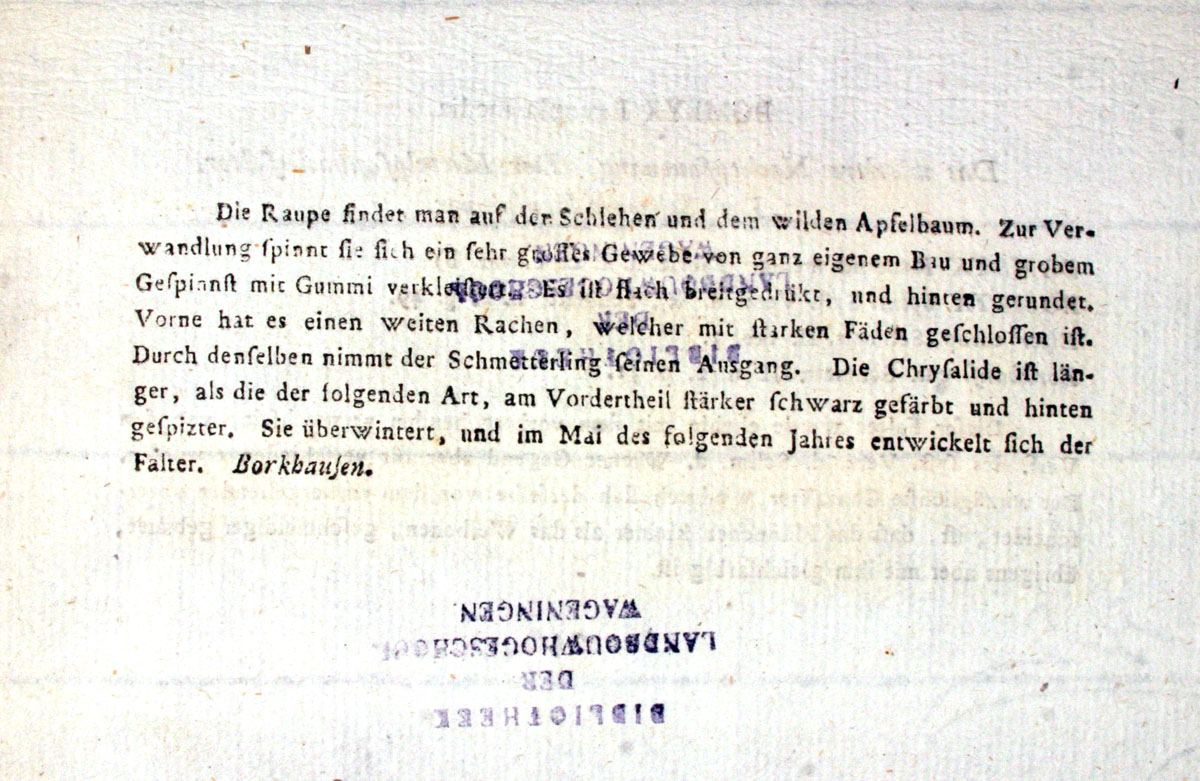 Die Raupe findet man auf der Schlehen und dem wilden Apfelbaum. Zur Ver-
wandlung ſpinnt ſie ſich ein ſehr groſſes Gewebe von ganz eigenem Bau und grobem
Geſpinnſt mit Gummi verkleiſtert. Es iſt flach breitgedrükt, und hinten gerundet.
Vorne hat es einen weiten Rachen, welcher mit ſtarken Fäden geſchloſſen iſt.
Durch denſelben nimmt der Schmetterling ſeinen Ausgang. Die Chryſalide iſt län-
ger, als die der folgenden Art, am Vordertheil ſtärker ſchwarz gefärbt und hinten
geſpizter. Sie überwintert, und im Mai des folgenden Jahres entwickelt ſich der
Falter. Borkhauſen.
WAGENINGEN
LANDBOUWHOGESCHOOL
DER
BIBLIOTHEEK